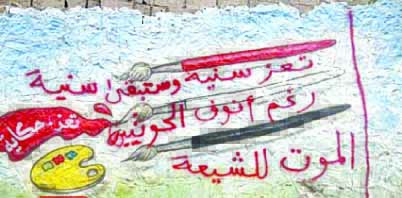 تعز سنية وستبقى سنية
رغم أنوف الحوثيين
الموت للشيعة
تعز حكاية